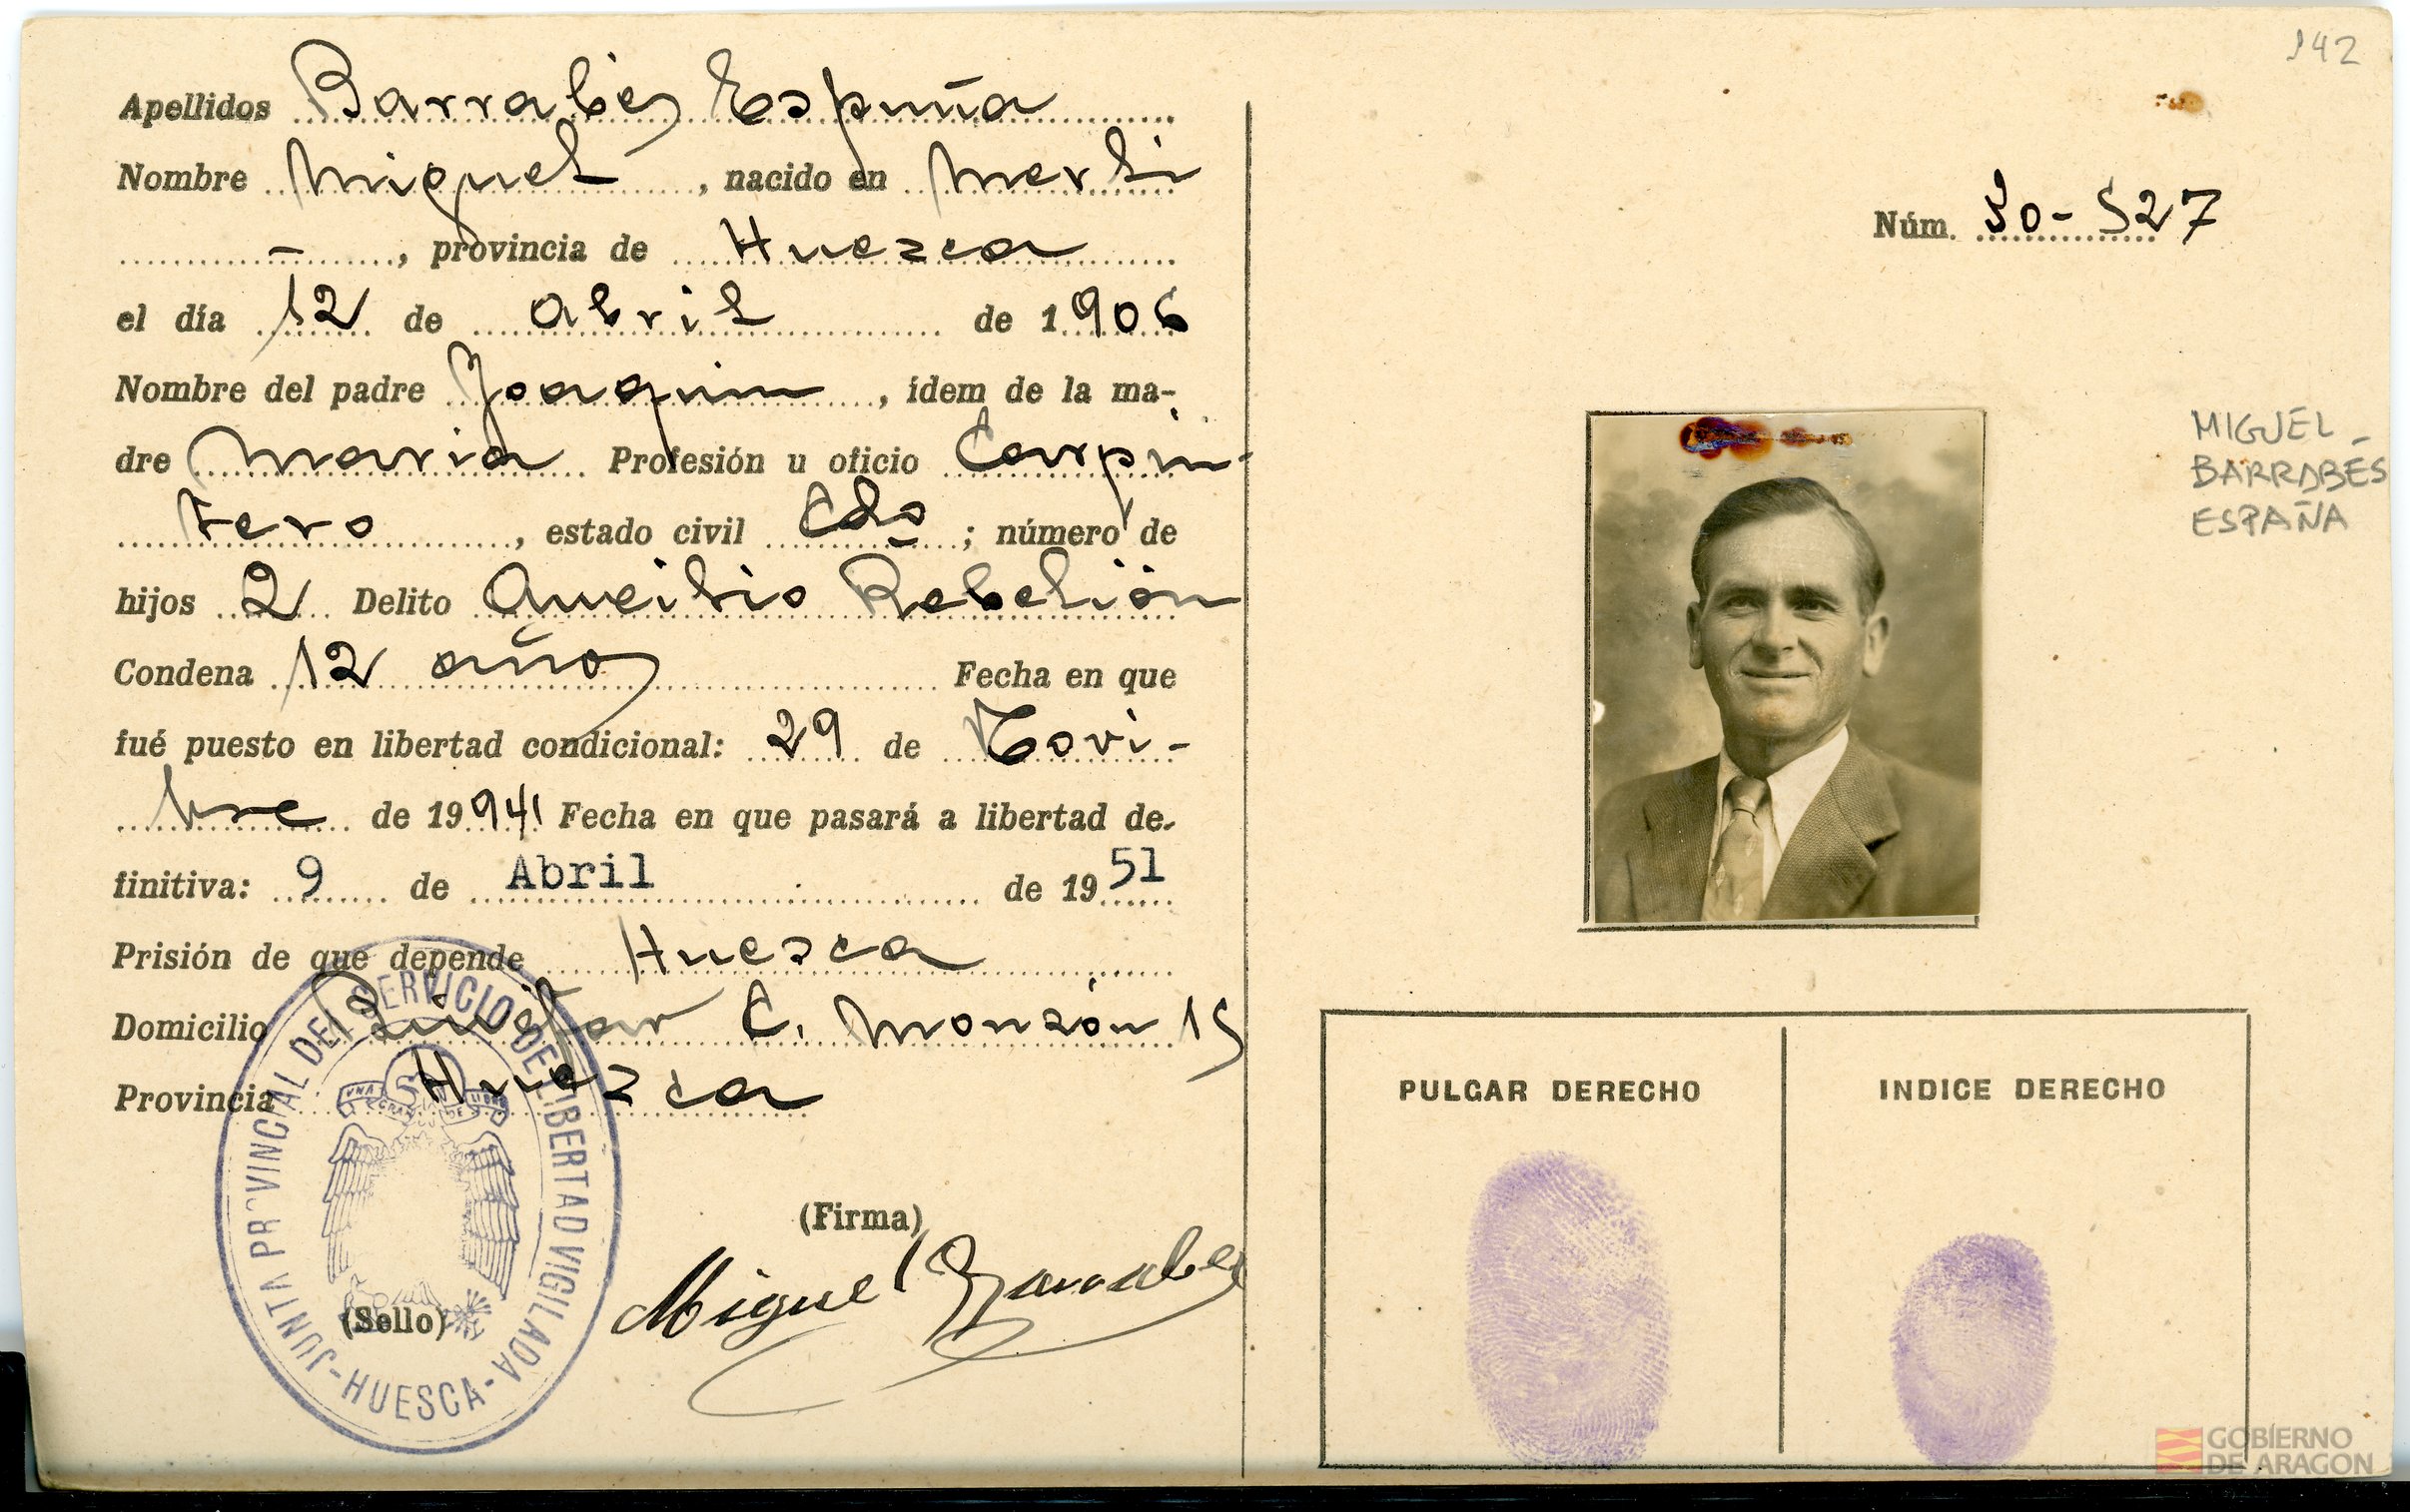 142
Apellidos Barrabés España
Nombre Miguel, nacido en Merli
-, provincia de Huesca
el día 12 de abril de 1906
Nombre del padre Joaquin, ídem de la ma-
dre Maria Profesión u oficio Carpin-
tero, estado civil Cdo; número de
hijos 2 Delito Auxilio Rebelión
Condena 12 años Fecha en que
fué puesto en libertad condicional: 29 de Novi-
bre de 19941 Fecha en que pasará a libertad de-
finitiva: 9 de Abril de 1951
Prisión de que depende Huesca
Domicilio Binéfar C. Monzón 15
Provincia Huesca
(Firma)
Miguel Barrabes
(Sello)
JUNTA PROVINCIAL DEL SERVICIO DE LIBERTAD VIGILADA
-HUESCA-
Núm. 30-527
MIGUEL
BARRABÉS
ESPAÑA
PULGAR DERECHO
INDICE DERECHO
GOBIERNO
DE ARAGON